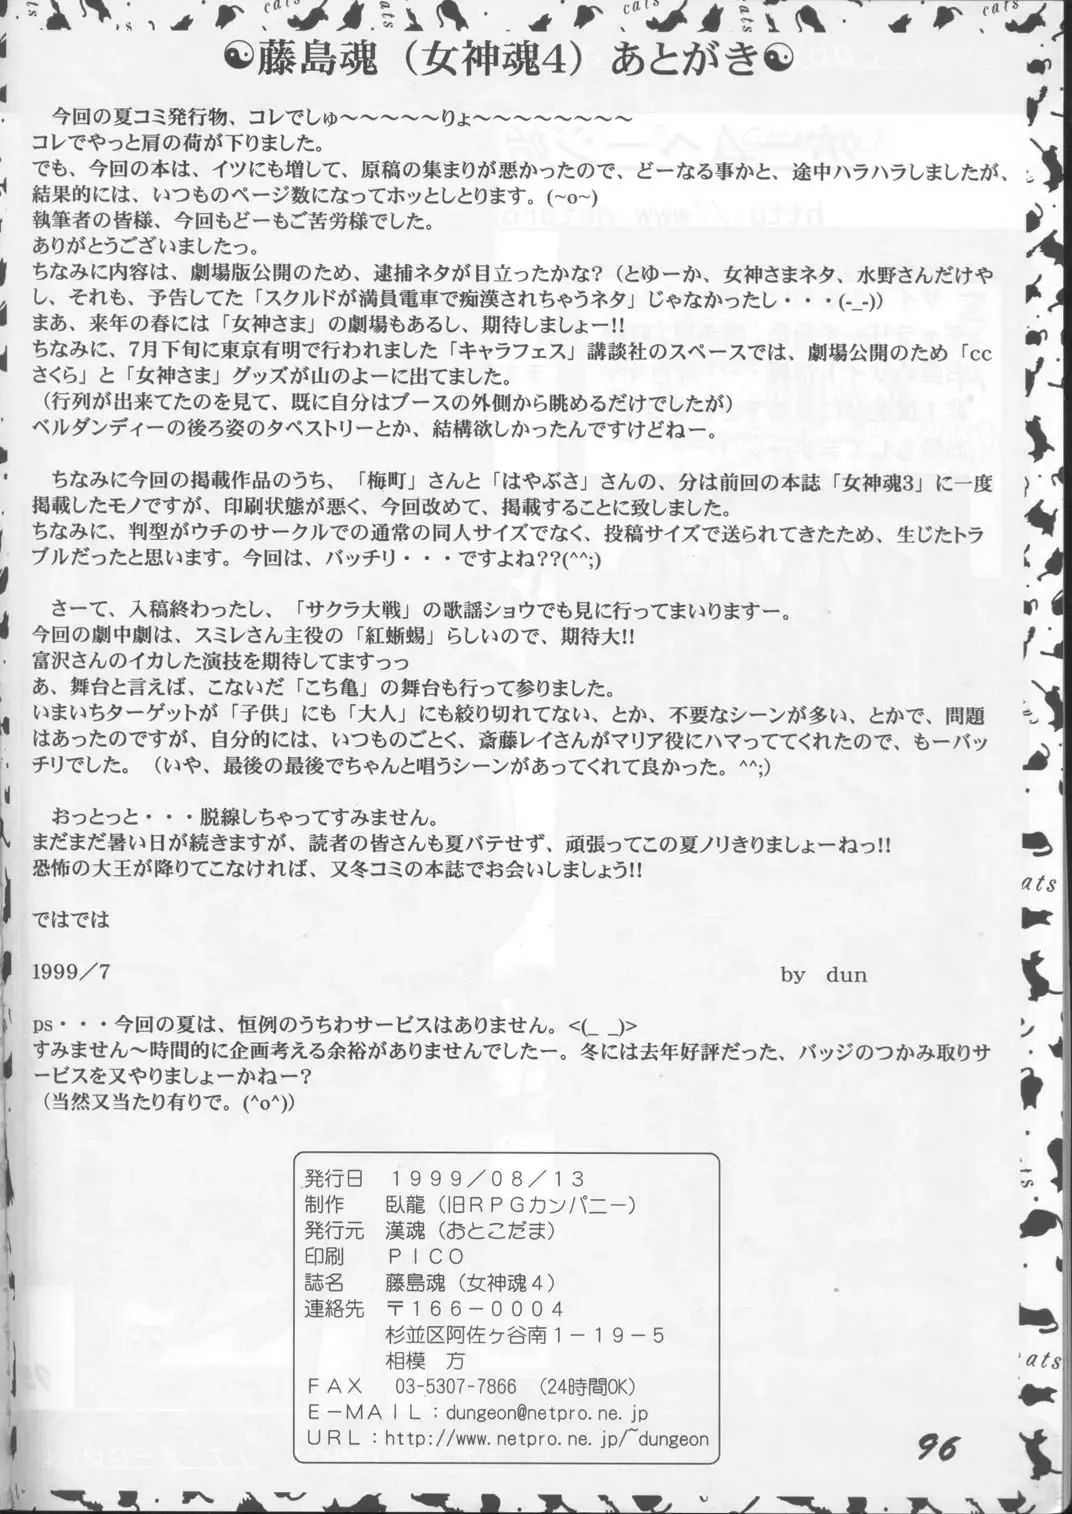 ☯藤島魂（女神魂４）あとがき☯
今回の夏コミ発行物、コレでしゅ～～～～～りょ～～～～～～～～
コレでやっと肩の荷が下りました。
でも、今回の本は、イツにも増して、原稿の集まりが悪かったので、どーなる事かと、途中ハラハラしましたが、
結果的には、いつものページ数になってホッとしとります。(~o~)
執筆者の皆様、今回もどーもご苦労様でした。
ありがとうございましたっ。
ちなみに内容は、劇場版公開のため、逮捕ネタが目立ったかな?（とゆーか、女神さまネタ、水野さんだけや
し、それも、予告してた「スクルドが満員電車で痴漢されちゃうネタ」じゃなかったし・・・(-_-)）
まあ、来年の春には「女神さま」の劇場もあるし、期待しましょー!!
ちなみに、7月下旬に東京有明で行われました「キャラフェス」講談社のスペースでは、劇場公開のため「cc
さくら」と「女神さま」グッズが山のよーに出てました。
（行列が出来てたのを見て、既に自分はブースの外側から眺めるだけでしたが）
ベルダンディーの後ろ姿のタペストリーとか、結構欲しかったんですけどねー。
ちなみに今回の掲載作品のうち、「梅町」さんと「はやぶさ」さんの、分は前回の本誌「女神魂3」に一度
掲載したモノですが、印刷状態が悪く、今回改めて、掲載することに致しました。
ちなみに、判型がウチのサークルでの通常の同人サイズでなく、投稿サイズで送られてきたため、生じたトラ
ブルだったと思います。今回は、バッチリ・・・ですよね??(^^;)
さーて、入稿終わったし、「サクラ大戦」の歌謡ショウでも見に行ってまいりますー。
今回の劇中劇は、スミレさん主役の「紅蜥蜴」らしいので、期待大!!
富沢さんのイカした演技を期待してますっっ
あ、舞台と言えば、こないだ「こち亀」の舞台も行って参りました。
いまいちターゲットが「子供」にも「大人」にも絞り切れてない、とか、不要なシーンが多い、とかで、問題
はあったのですが、自分的には、いつものごとく、斎藤レイさんがマリア役にハマっててくれたので、もーバッ
チリでした。（いや、最後の最後でちゃんと唱うシーンがあってくれて良かった。^^;）
おっとっと・・・脱線しちゃってすみません。
まだまだ暑い日が続きますが、読者の皆さんも夏バテせず、頑張ってこの夏ノリきりましょーねっ!!
恐怖の大王が降りてこなければ、又冬コミの本誌でお会いしましょう!!
ではでは
1999／7 by dun
ps・・・今回の夏は、恒例のうちわサービスはありません。<(_ _)>
すみません～時間的に企画考える余裕がありませんでしたー。冬には去年好評だった、バッジのつかみ取りサ
ービスを又やりましょーかねー?
（当然又当たり有りで。(^o^)）
発行日 １９９９／０８／１３
制作 臥龍（旧ＲＰＧカンパニー）
発行元 漢魂（おとこだま）
印刷 ＰＩＣＯ
誌名 藤島魂（女神魂４）
連絡先 〒１６６－０００４
杉並区阿佐ヶ谷南１－１９－５
相模 方
ＦＡＸ 03-5307-7866 (24時間OK)
Ｅ－ＭＡＩＬ：dungeon@netpro.ne.jp
ＵＲＬ：http://www.netpro.ne.jp/~dungeon
96